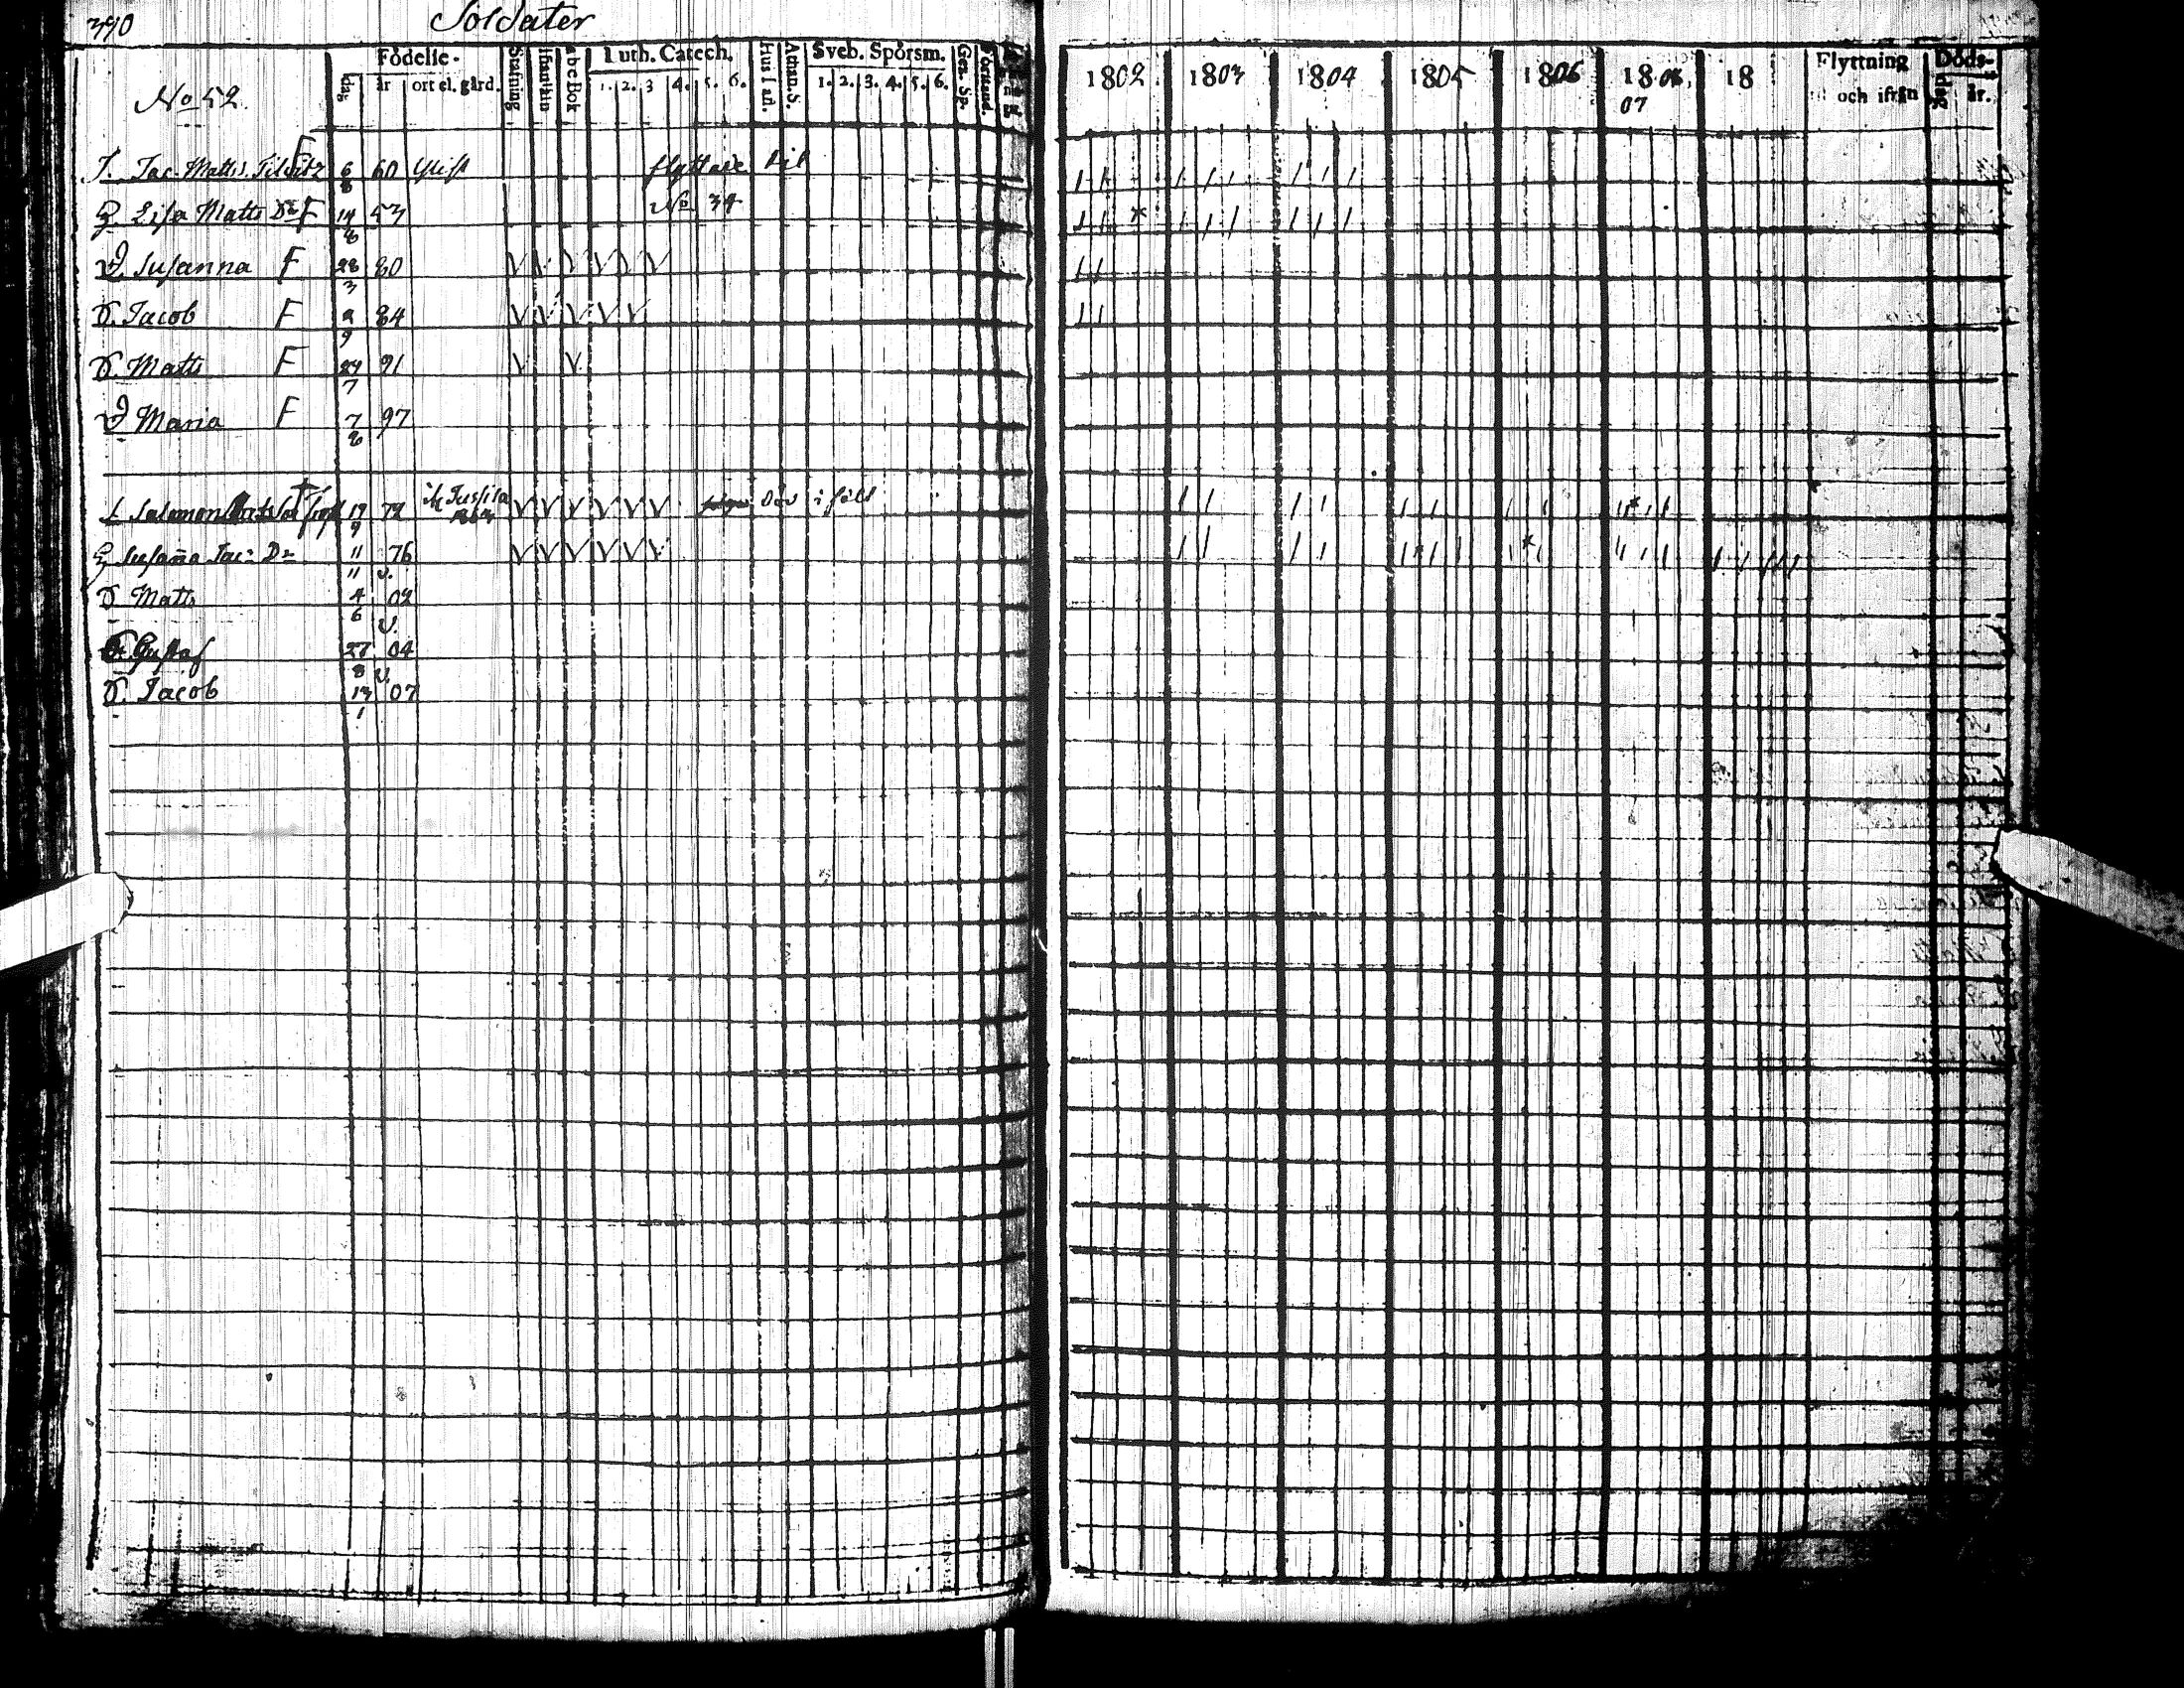 390 Soldater
No 52.
Födelse-
dag år ort el. gård.
Stafning abc Bok
Luth. Catech.
1. 2. 3 4. 5. 6.
Hus taf. Athan. S.
Sveb. Spörsm.
1. 2. 3. 4. 5. 6.
Gen. Sp. Förstånd.
1802 1803 1804 1805 1806 1806. 18
07
Flyttning
till och ifrån
Döds-
dag år.
Jac. Matts. F 6 60 flyttade til
8
Lisa Matts Dr F 14 53 No 34
8
D Susanna F 28 80
3
S. Jacob F 9 84
9
S. Matts F 24 91
7
D Maria F 7 97
8
Salomon 19 72 Död i fält
9
Susana Jac: Dr 11 76
11 v.
S Matts 4 02
6 v.
Gustaf 27 04
8 v.
S. Jacob 13 07
1